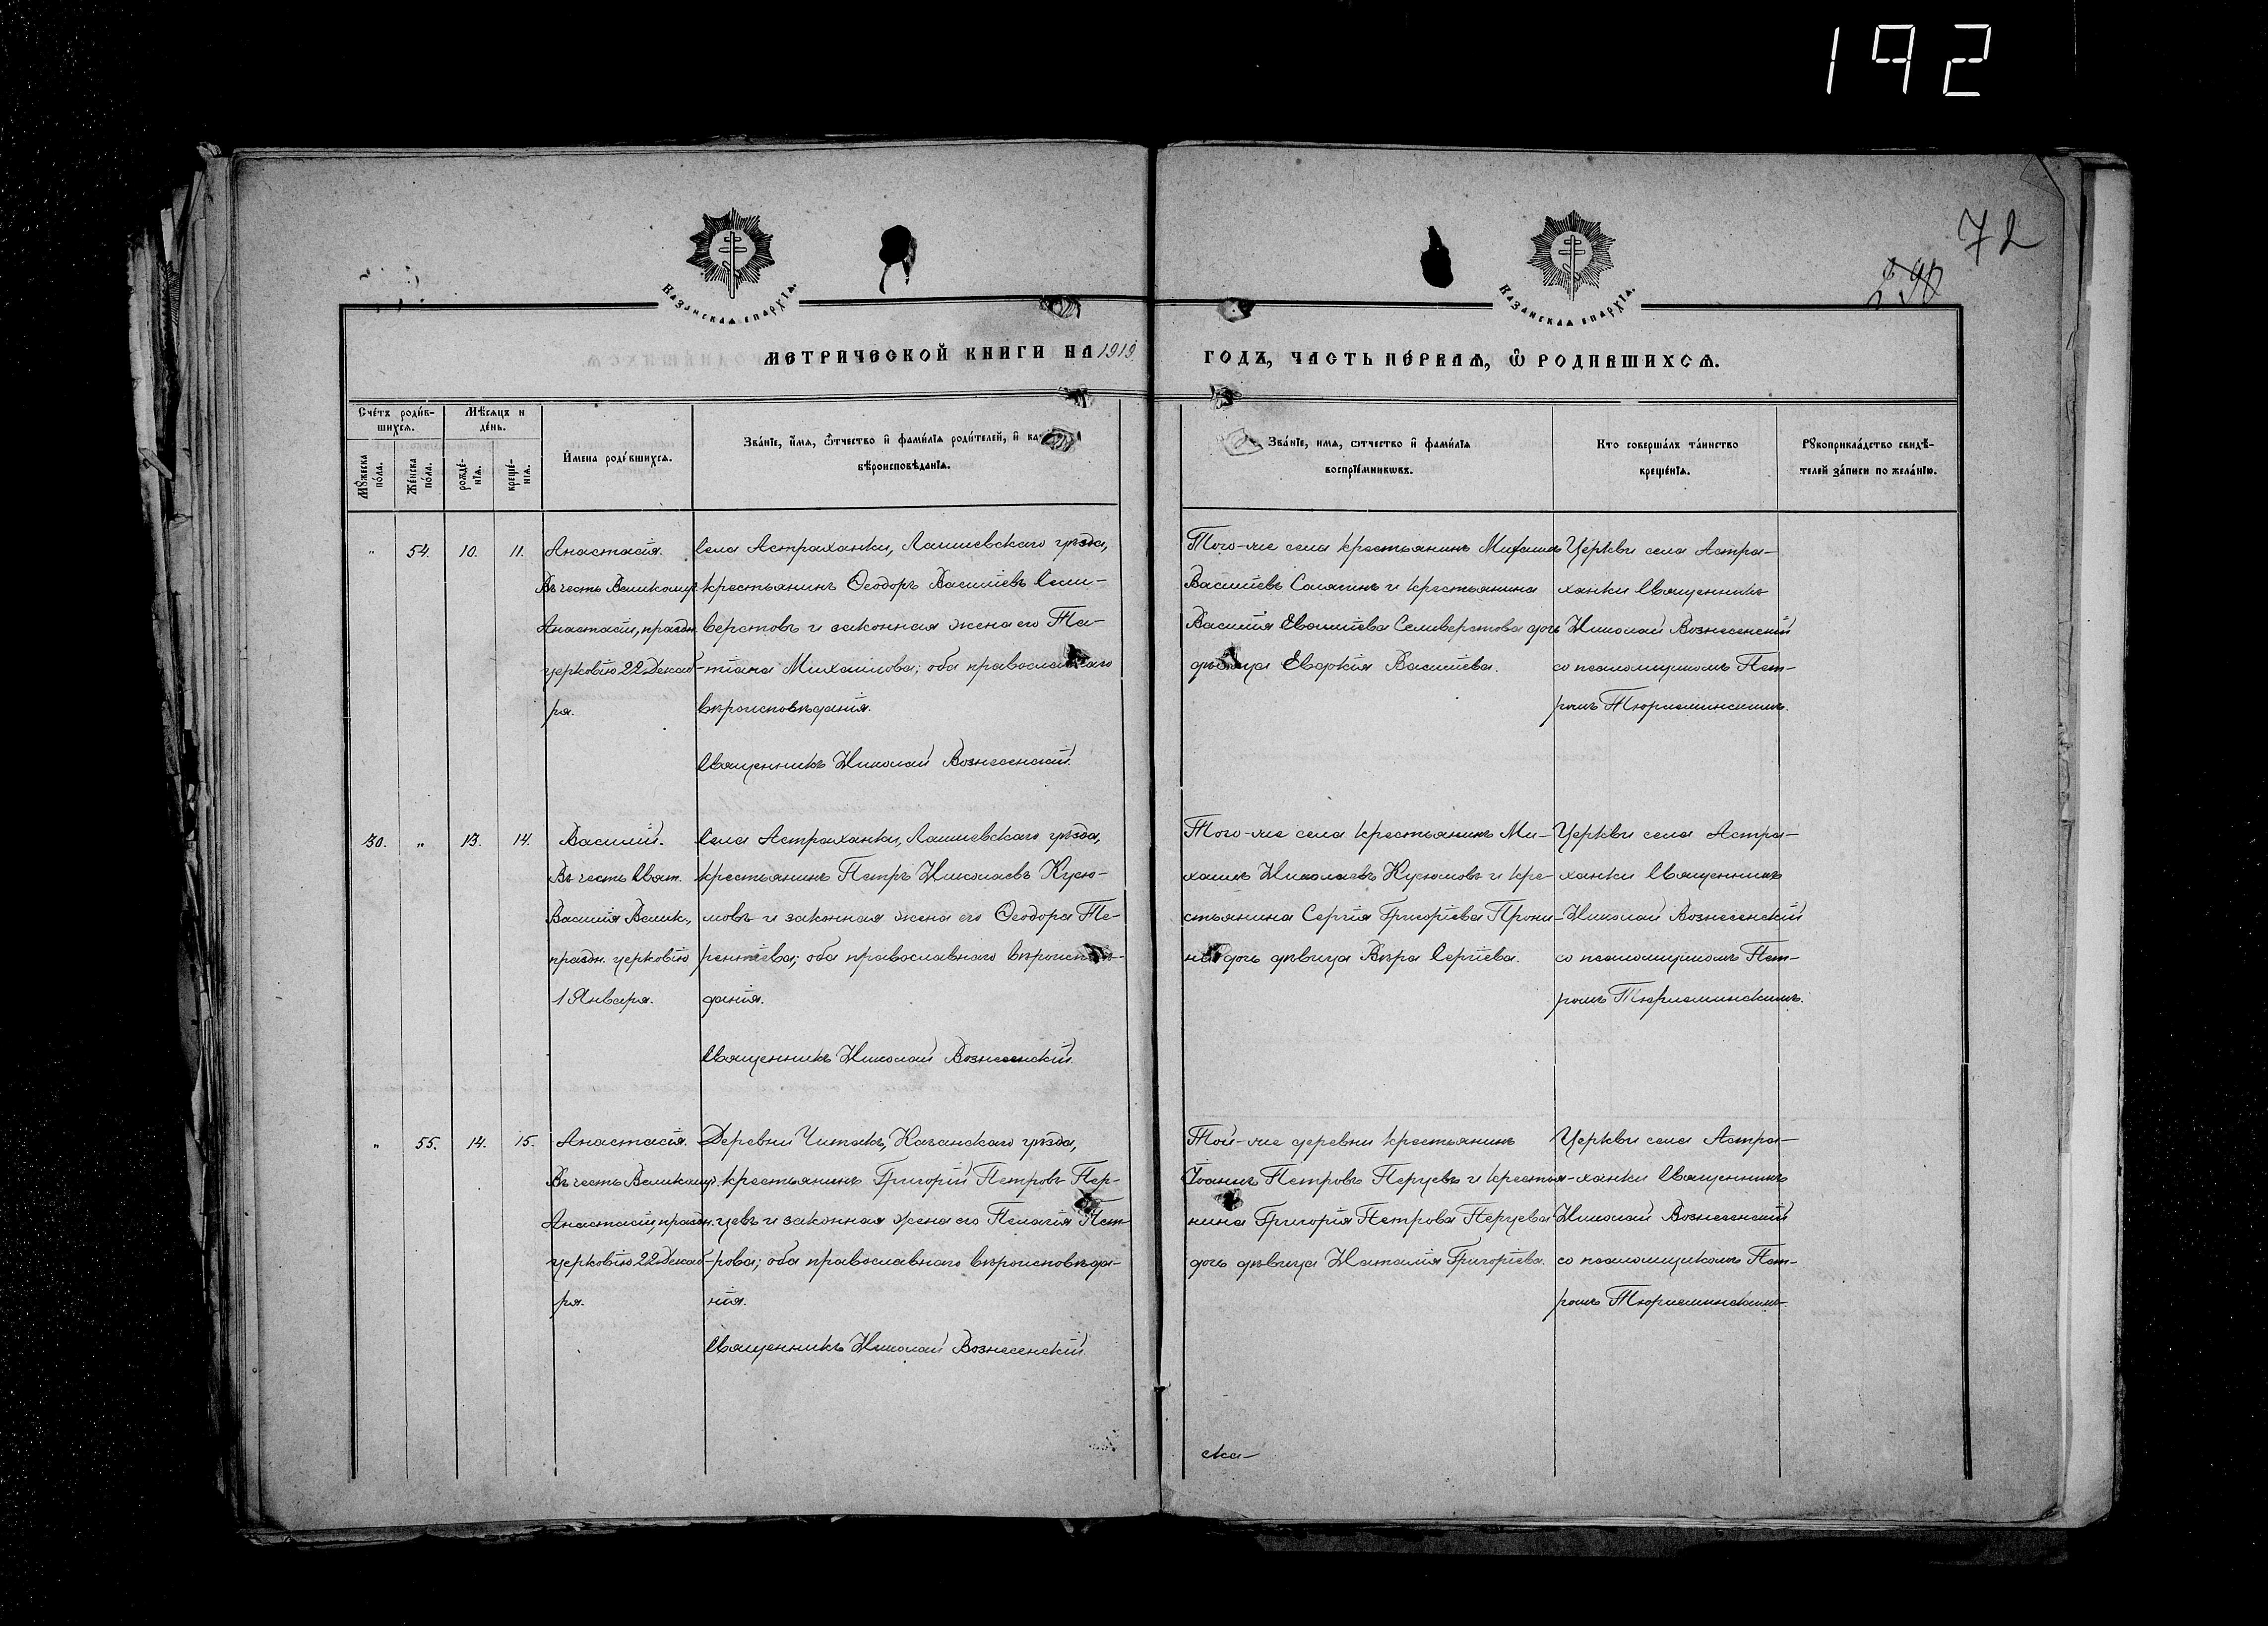 192
72
290
Казанская епархіа.
Казанская епархіа.
МЕТРИЧЕСКОЙ КНИГИ НА 1919
ГОДЪ, ЧАСТЬ ПЕ́РВАѦ, Ѽ РОДИВШИХСѦ.
Сче́тъ роди́в-
шихсѧ.
Мѣ́сѧцъ и
де́нь.
Мꙋ́жеска
по́ла.
Же́нска
по́ла.
рожде́-
нїѧ.
креще́-
нїѧ.
И҆мена роди́вшихсѧ.
Зва́нїе, и҆́мѧ, ѻ҆́тчество и҆ фами́лїѧ роди́телей, и҆ ка-
вѣроисповѣ́данїѧ.
Зва́нїе, имѧ, ѻтчество и҆ фами́лїѧ
воспрїе́мникѡвъ.
Кто соверша́лъ та́инство
креще́нїѧ.
Рꙋкоприкла́дство свидѣ́-
телей за́писи по жела́нїю.
" 54. 10. 11. Анастасія.
Въ честь Великомуч.
Анастасіи, праздн.
церковію 22 Декаб-
ря.
Села Астраханки, Лаишевскаго уѣзда,
крестьянинъ Ѳеодоръ Васильевъ Сели-
верстовъ и законная жена его Та-
тіана Михаилова; оба православнаго
вѣроисповѣданія.
Священникъ Николай Вознесенскій.
Того-же села крестьянинъ Михаилъ
Васильевъ Салягинъ и крестьянина
Василія Селиверстова дочь
дѣвица Евдокія Васильева.
Церкви села Астра-
ханки Священникъ
Николай Вознесенскій
со псаломщикомъ Пет-
ромъ Тюрлеминскимъ.
30. " 13. 14. Василій.
Въ честь Свят.
Василія Велик.,
праздн. церковію
1 Января.
Села Астраханки, Лаишевскаго уѣзда,
крестьянинъ Петръ Николаевъ Кусю-
мовъ и законная жена его Ѳеодора Те-
рентіева; оба православнаго вѣроисповѣ-
данія.
Священникъ Николай Вознесенскій.
Того-же села крестьянинъ Ми-
хаилъ Николаевъ Кусюмовъ и кре-
стьянина Сергія Григоріева Прони-
на дочь дѣвица Вѣра Сергіева.
Церкви села Астра-
ханки Священникъ
Николай Вознесенскій
со псаломщикомъ Пет-
ромъ Тюрлеминскимъ.
" 55. 14. 15. Анастасія.
Въ честь Великомуч.
Анастасіи, праздн.
церковію 22 Декаб-
ря.
Деревни Читакъ, Казанскаго уѣзда,
крестьянинъ Григорій Петровъ Пер-
цевъ и законная жена его Пелагія Пет-
рова; оба православнаго вѣроисповѣда-
нія.
Священникъ Николай Вознесенскій.
Той-же деревни крестьянинъ
Іоаннъ Петровъ Перцевъ и крестья-
нина Григорія Петрова Перцева
дочь дѣвица Наталія Григоріева.
Церкви села Астра-
ханки Священникъ
Николай Вознесенскій
со псаломщикомъ Пет-
ромъ Тюрлеминскимъ.